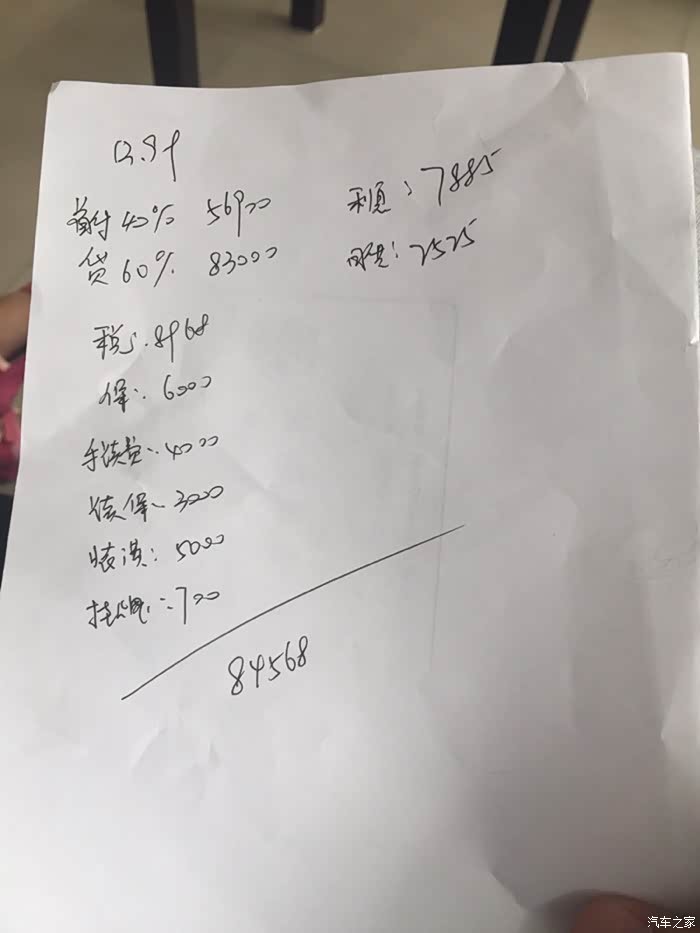 13.99
首付40% 56900 利息:7885
贷60% 83000 月供:2525
税:8968
保:6000
手续费:4000
续保:3000
装潢:5000
挂牌:700
84568
汽车之家